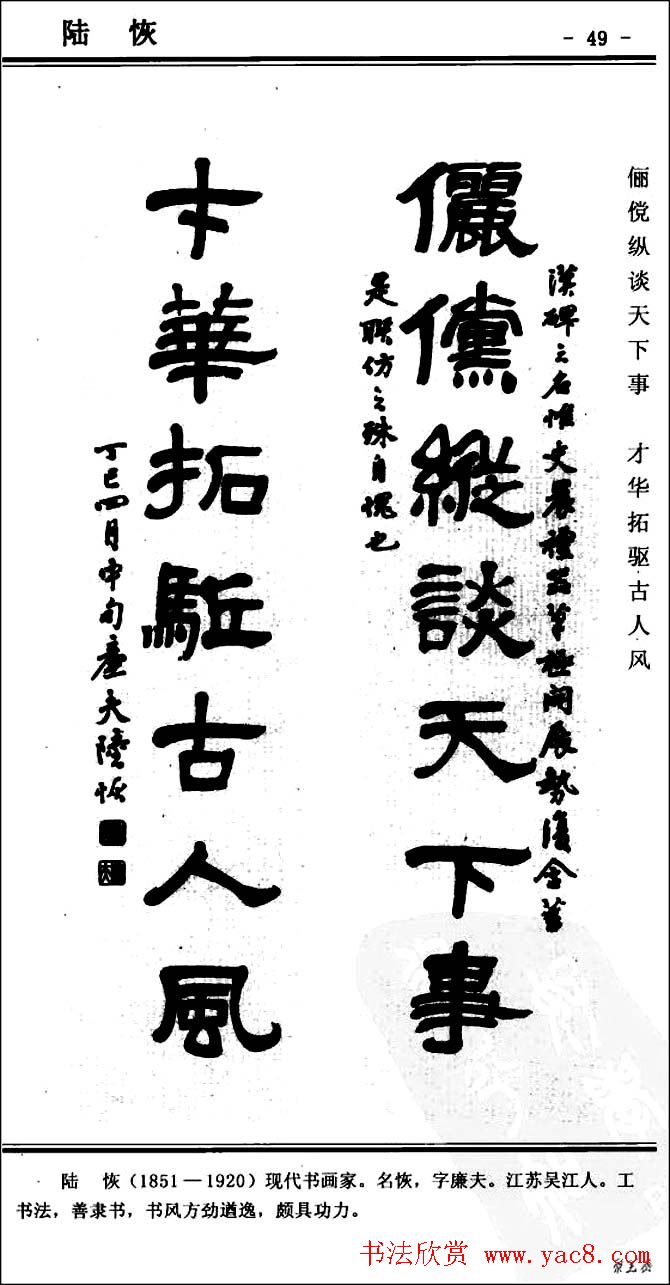 陆 恢
- 49 -
俪傥纵谈天下事 才华拓驱古人风
漢碑之名惟史晨禮器筆極開展勢復含蓄
儷儻縱談天下事
是联仿之殊自愧也
才華拓駈古人風
丁巳四月中旬廉夫陸恢
陆 恢（1851—1920）现代书画家。名恢，字廉夫。江苏吴江人。工
书法，善隶书，书风方劲遒逸，颇具功力。
书法欣赏 www.yac8.com